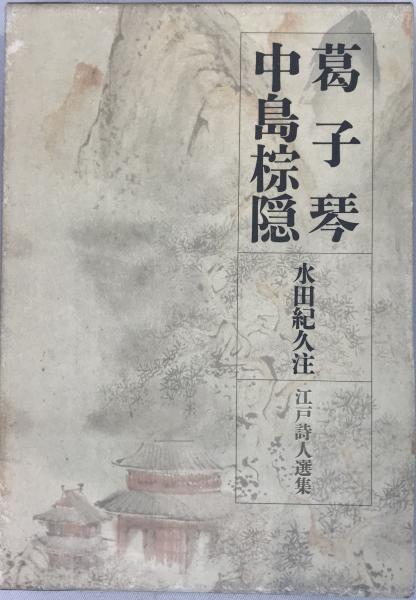 葛子琴
中島棕隠
水田紀久注
江戸詩人選集